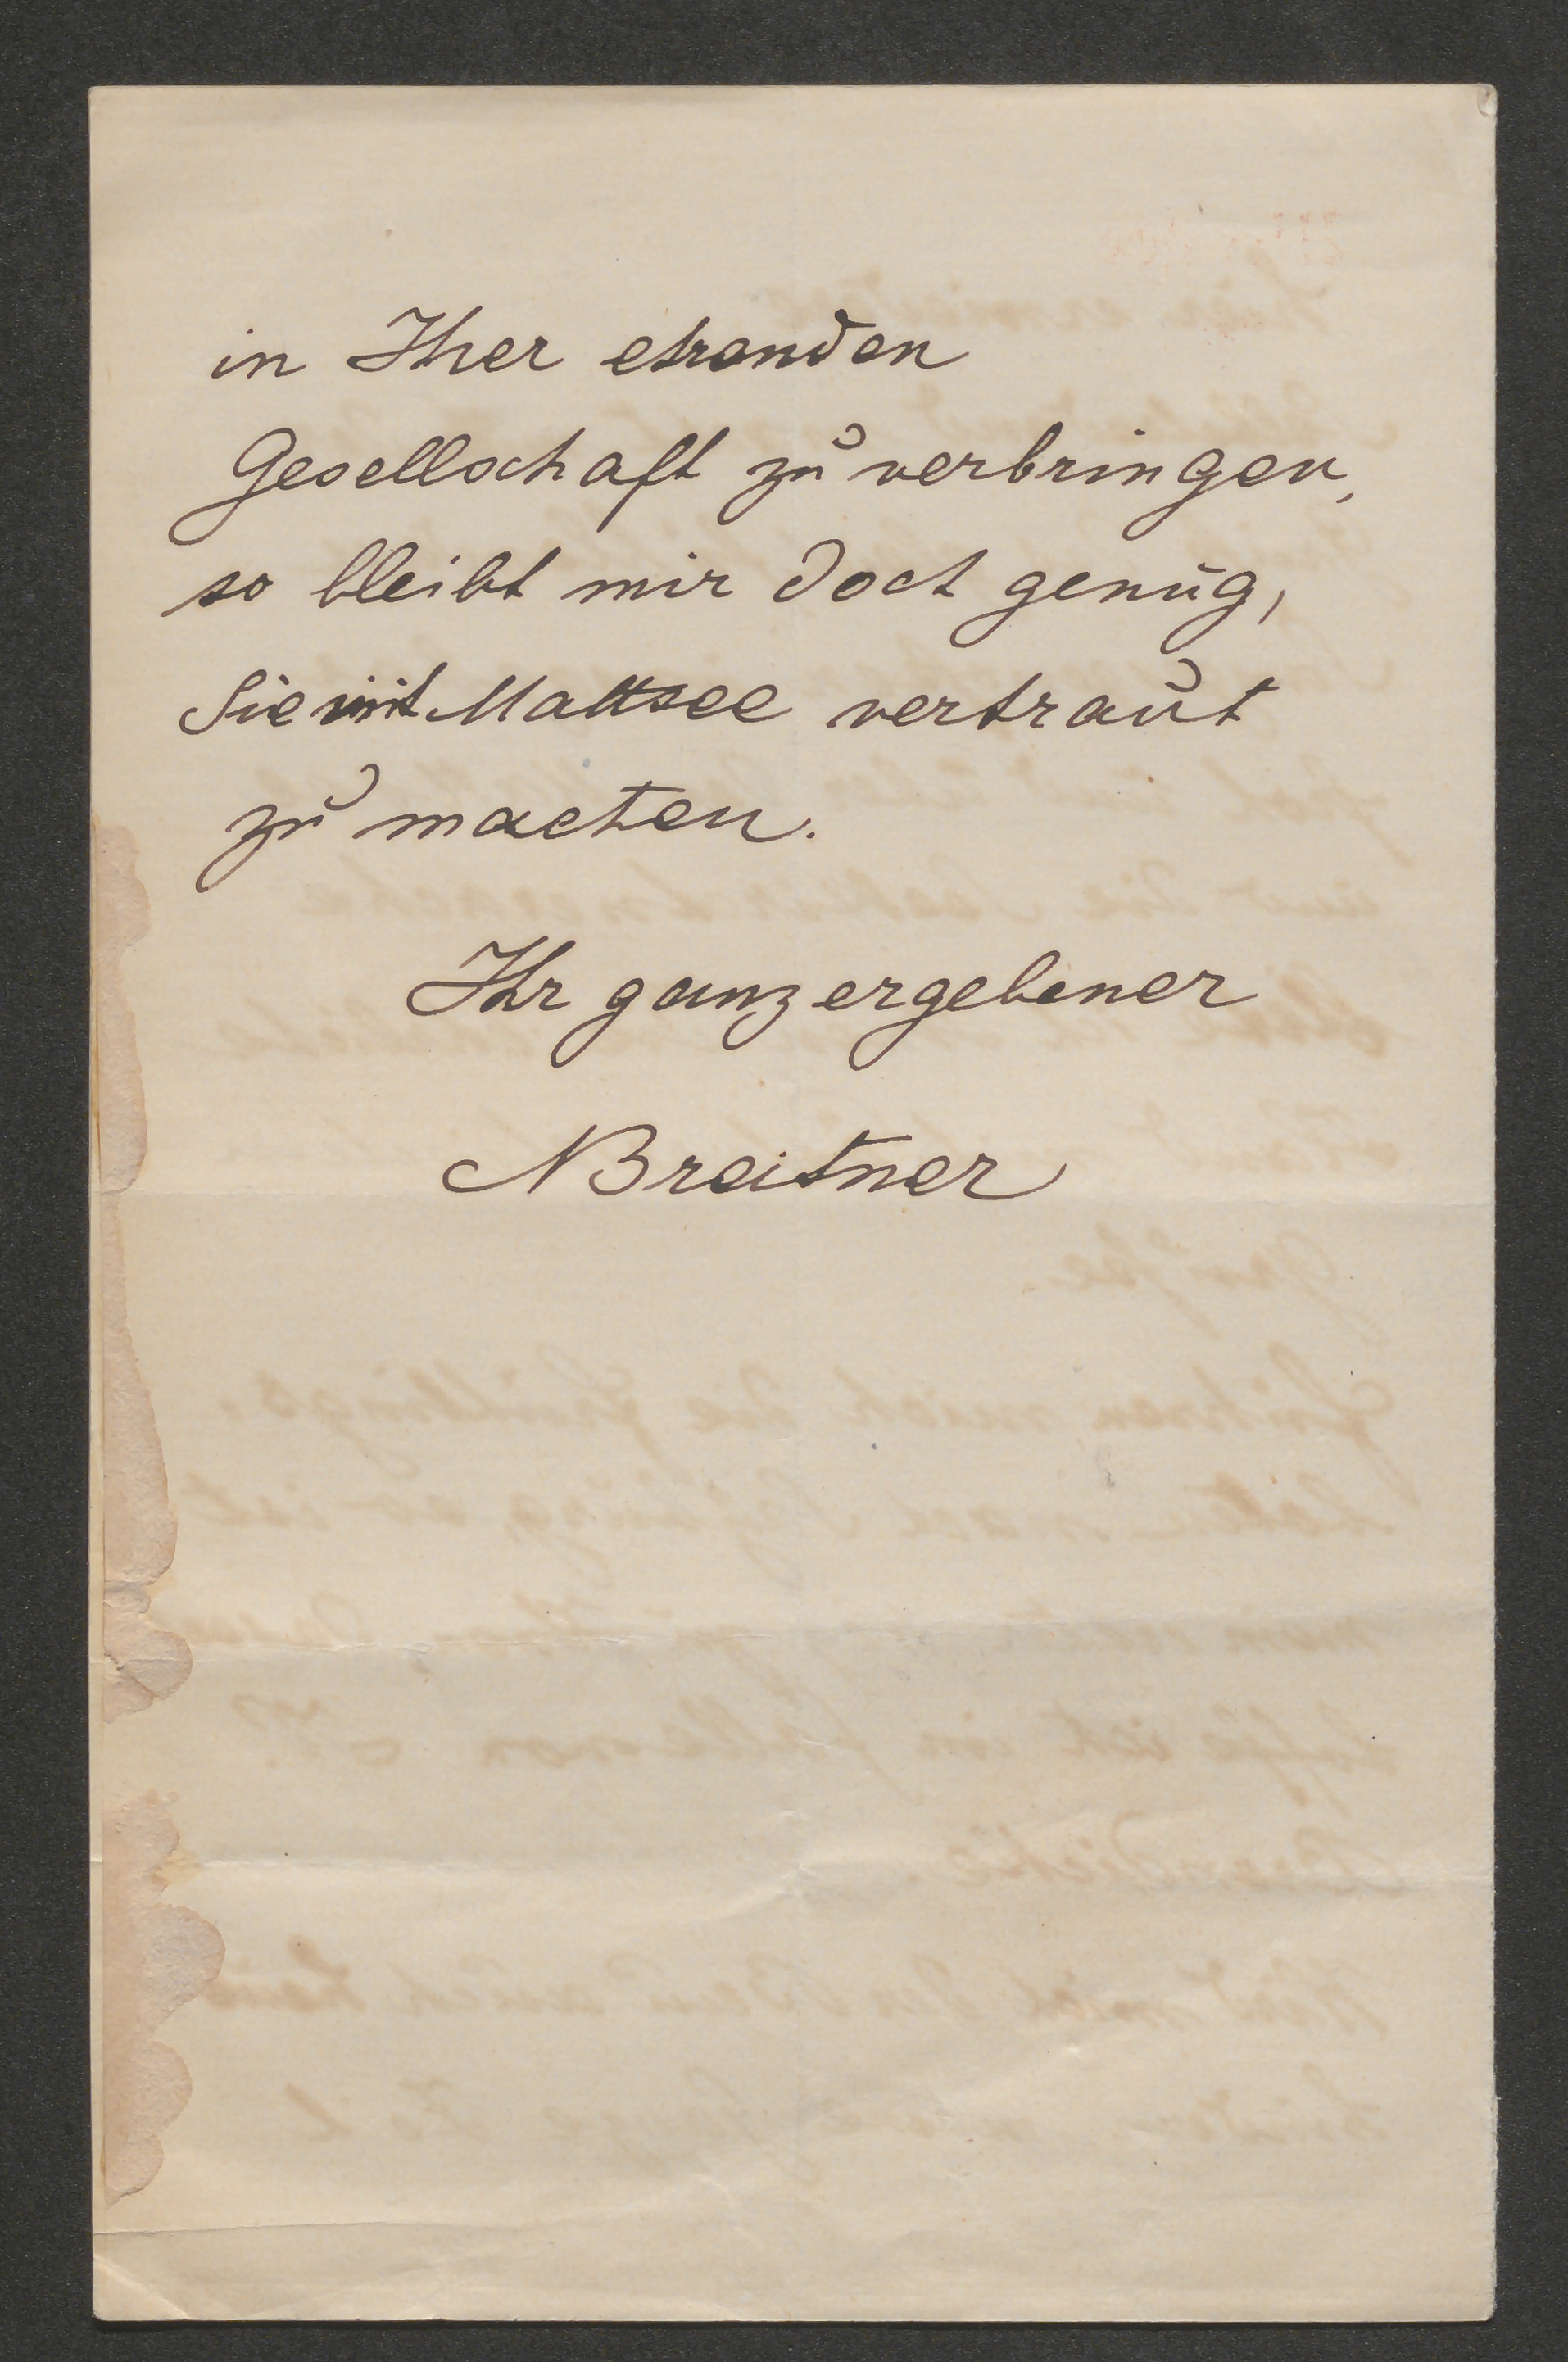 in Ihrer ehrenden
Gesellschaft zu verbringen,
so bleibt mir doch genug,
Sie mit Mattsee vertraut
zu machen.
Ihr ganz ergebener
Breitner